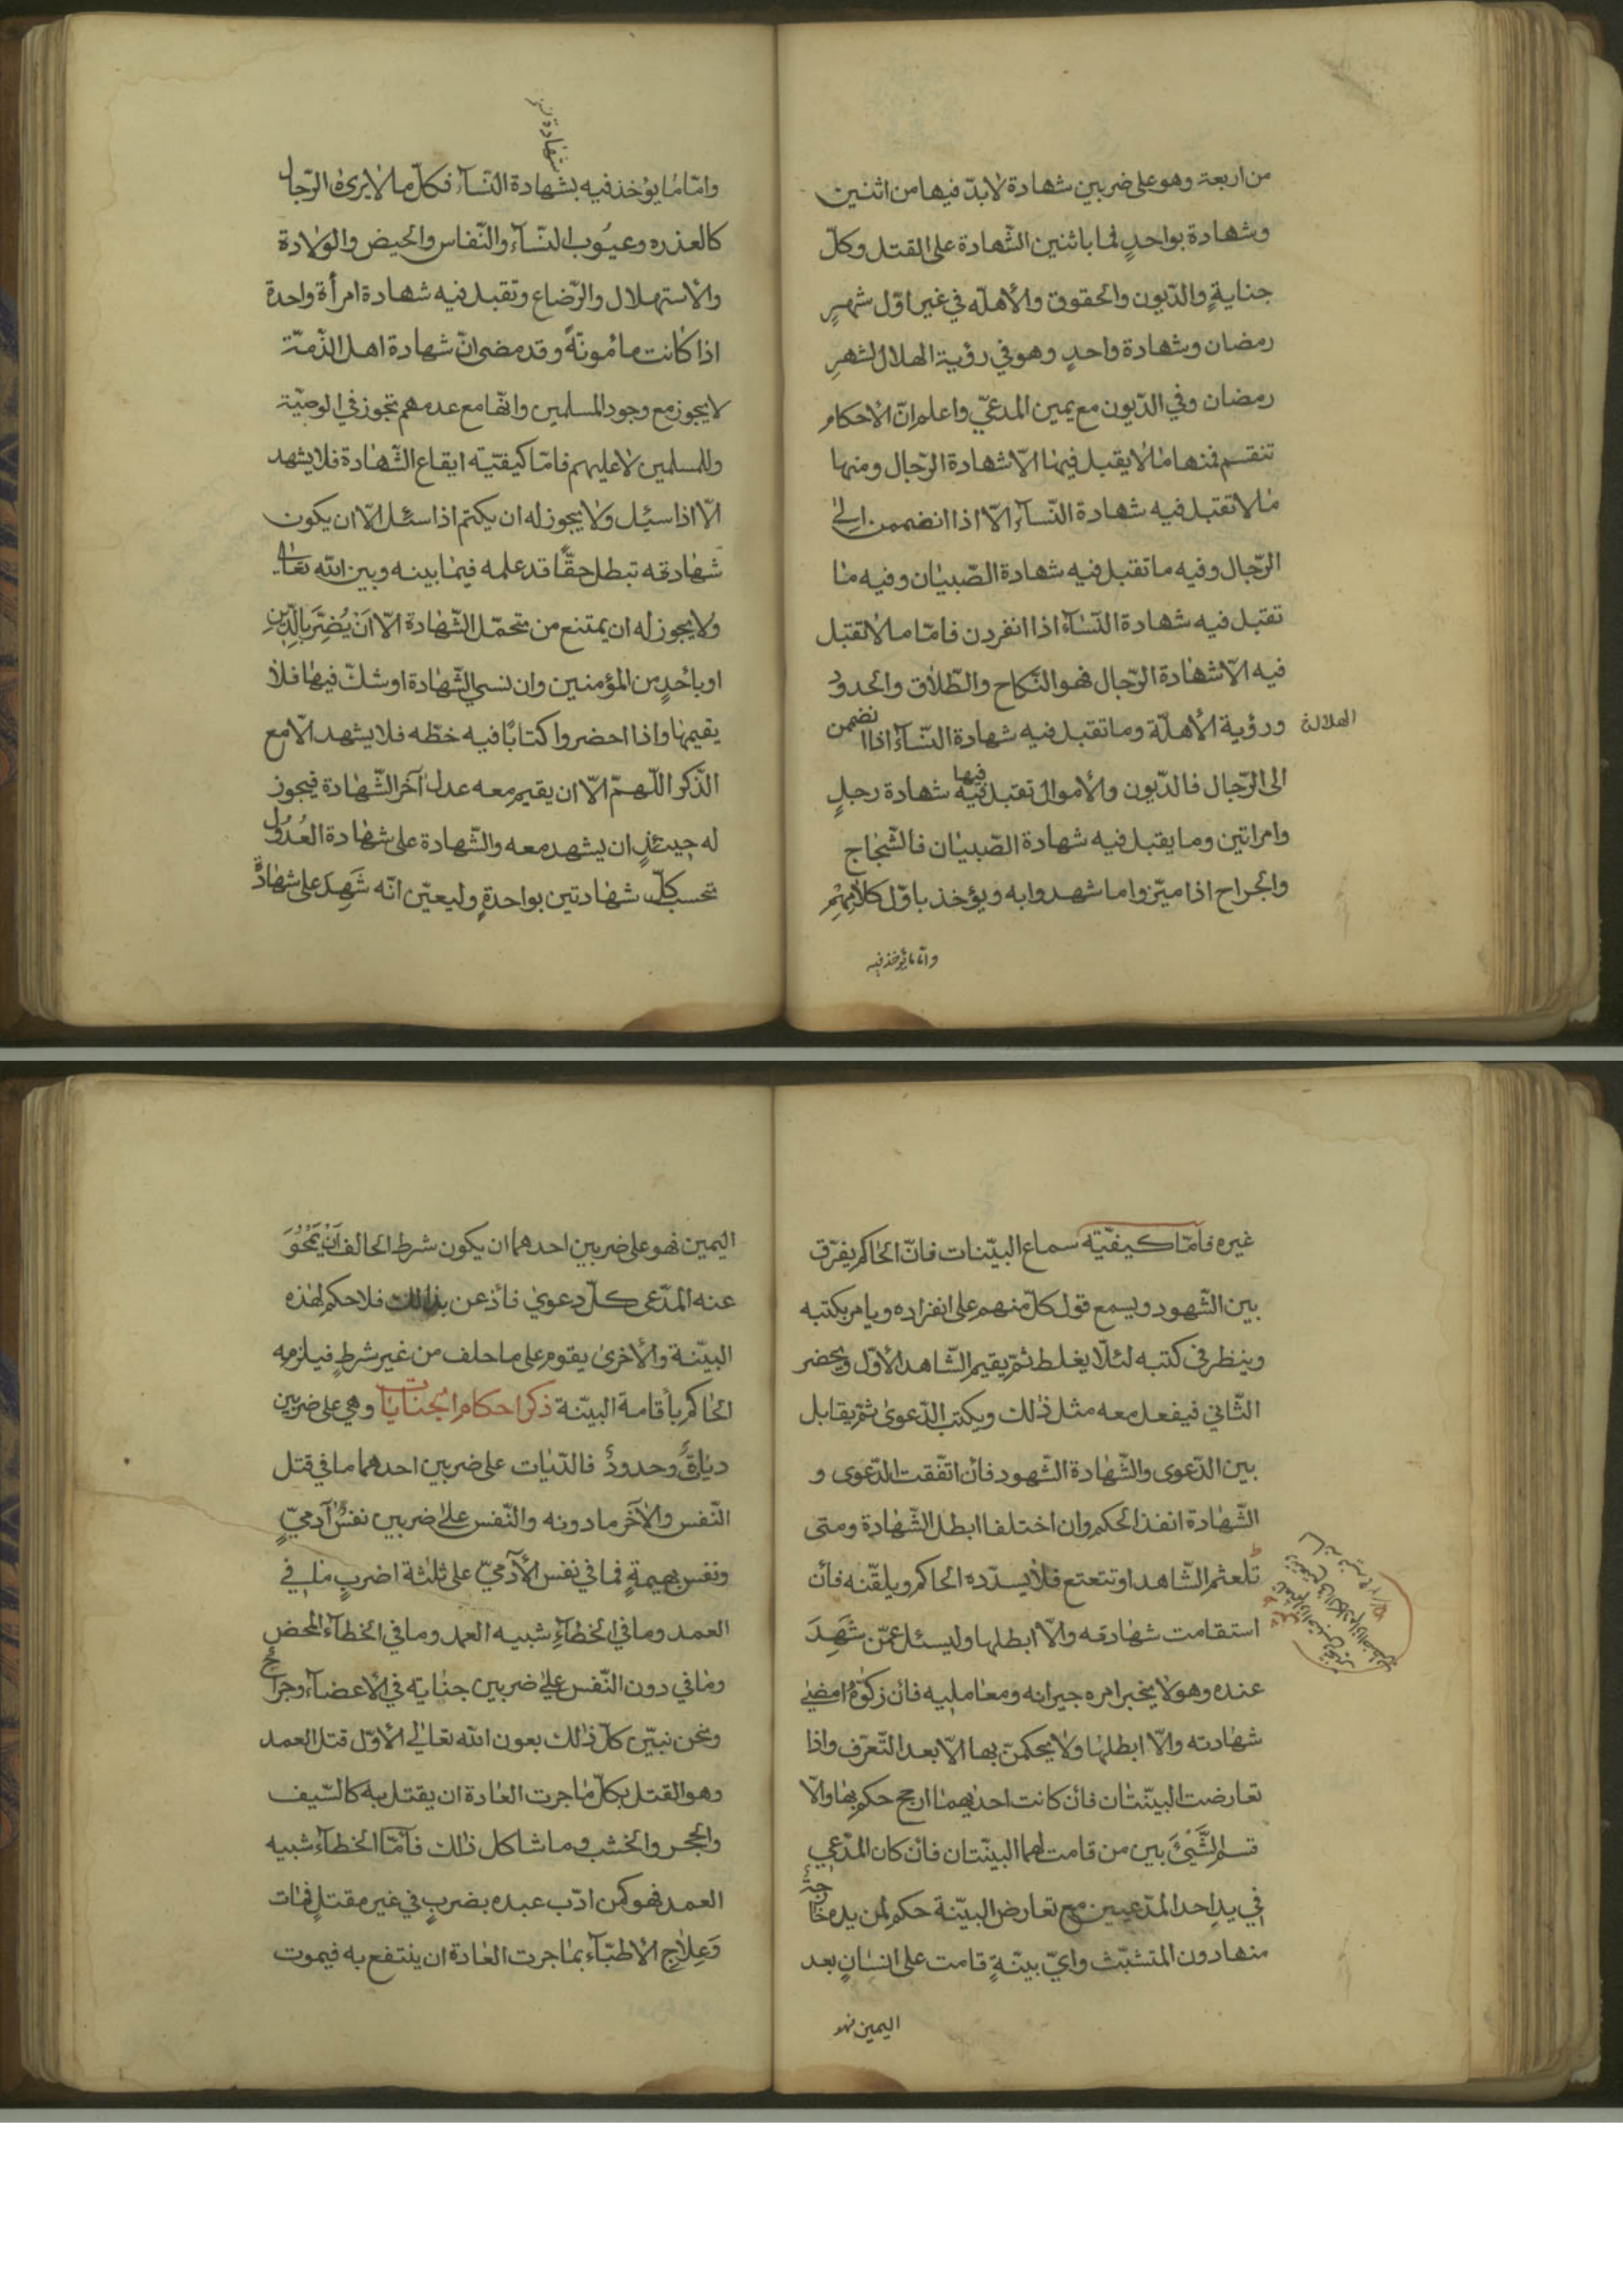 من اربعة وهو على ضربين شهادة لا بدّ فيها من اثنين
وشهادة بواحدٍ فما باثنين الشّهادة على القتل وكلّ
جنايةٍ والدّيون والحقوق والأهلّه في غير اوّل شهرٍ
رمضان وشهادة واحدٍ وهو في رؤية الهلال لشهرِ
رمضان وفي الدّيون مع يمين المدعيّ واعلم انّ الأحكام
تنقسم فمنها ما لا يقبل فيها الّا شهادة الرّجال ومنها
ما لا تقبل فيه شهادة النّسآء الّا اذا انضممن الى
الرّجال وفيه ما تقبل فيه شهادة الصّبيان وفيه ما
تقبل فيه شهادة النّسآء اذا انفردن فامّا ما لا تقبل
فيه الّا شهادة الرّجال فهو النّكاح والطّلاق والحدود
ورؤية الأهلّة وما تقبل فيه شهادة النّسآء اذا انضممن
الهلالة
الى الرّجال فالدّيون والأموال تقبل فيه شهادة رجلٍ
فيها
وامراتين وما يقبل فيه شهادة الصّبيان فالشّجاج
والجراح اذا ميّزوا ما شهدوا به ويؤخذ باوّل كلامِهِم
وامّا ما يؤخذ فيه
شهادة
وامّا ما يؤخذ فيه بشهادة النّسآء فكلّ ما لا يرىٰ الرّجال
كالعذره وعيُوب النّسآء والنّفاس والحيض والولادة
والأستهلال والرّضاع وتقبل فيه شهادة امرأة واحدة
اذا كانت مامُونةً وقد مضى انّ شهادة اهل الذّمّة
لا يجوز مع وجود المسلمين وانّها مع عدمهم تجوز في الوصيّة
وللمسلمين لا عليهم فامّا كيفيّة ايقاع الشّهادة فلا يشهد
الّا اذا سيُل ولا يجوز له ان يكتم اذا سئل الّا ان يكون
شهادته تبطل حقًّا قد علمه فيما بينه وبين الله تعالى
ولا يجوز له ان يمتنع من تحمّل الشّهادة الّا اَنْ يُضِرَّ بالدّينِ
او باحُدٍ من المؤمنين وان نسي الشّهادة او شكّ فيها فلا
يقيمها واذا احضروا كتابًا فيه خطّه فلا يشهد الّا مع
الذّكر اللّهمّ الّا ان يقيم معه عدل آخر الشّهادة فيجوز
له حينئذٍ ان يشهد معه والشّهادة على شهادة العُدُول
تحسب كلّ شهادتين بواحدةٍ وليعيّن انّه شَهِدَ على شهادة
غيره فامّا كيفيّة سماع البيّنات فانّ الحاكم يفرّق
بين الشّهود ويسمع قول كلّ منهم على انفراده ويامر بكتبه
وينظر في كتبه لئلّا يغلط ثمّ يقيم الشّاهد الأوّل ويحضر
الثّاني فيفعل معه مثل ذٰلك ويكتب الدّعوىٰ ثمّ يقابل
بين الدّعوى والشّهادة الشّهود فأن اتفّقت الدّعوى و
الشّهادة انفذ الحكم وان اختلفا ابطل الشّهادة ومتى
تلعثم الشّاهد او تتعتع فلا يسدّده الحاكم ويلقّنه فأن
استقامت شهادته والّا ابطلها وليسئل عمّن شَهِدَ
عنده وهو لا يخبر امره جيرانه ومعامليه فان زكّوهُ امضي
شهادته والّا ابطلها ولا يحكمنّ بها الّا بعد التّعرّف واذا
تعارضت البيّنتان فأن كانت احديهما ارجح حكم بها والّا
قسم الشَّيْئَ بين من قامت لهما البيّنتان فأن كان المدّعي
في يدِ احد المدّعيين مع تعارض البيّنة حكم لمن يده خارجة
منها دون المتشبّث وايّ بيّنةٍ قامت على انسانٍ بعد
اليمين فهو
اليمين فهو على ضربين احدهما ان يكون شرط الحالف اَنْ يَمْحُوَ
عنه المدّعى كلّ دعوىٰ فأذعن بذالك فلا حكم لهٰذه
البيّنة والأخرىٰ يقوم على ما حلف من غير شرطٍ فيلزمه
الحاكم بأقامة البيّنة ذكر احكام الجنايات وهي على ضربين
دياةٌ وحدودٌ فالدّيات على ضربين احدهما ما في قتل
النّفس والآخر ما دونه والنّفس علىٰ ضربين نفسُ آدميٍّ
ونفس بهيمةٍ فما في نفس الأدميّ على ثلٰثة اضربٍ ما في
العمد وما في الخطآءِ شبيه العمد وما في الخطآء المحض
وما في دون النّفس علىٰ ضربين جناية في الأعضآء وجراح
ونحن نبيّن كلّ ذٰلك بعون الله تعالىٰ الأوّل قتل العمد
وهو القتل بكلّ ما جرت العادة ان يقتل به كالسّيف
والحجر والخشب وما شاكل ذٰلك فأمّا الخطآء شبيه
العمد فهو كمن ادّب عبده بضربٍ في غير مقتلٍ فمات
وَعِلاجِ الأطبّآء بما جرت العادة ان ينتفع به فيموت